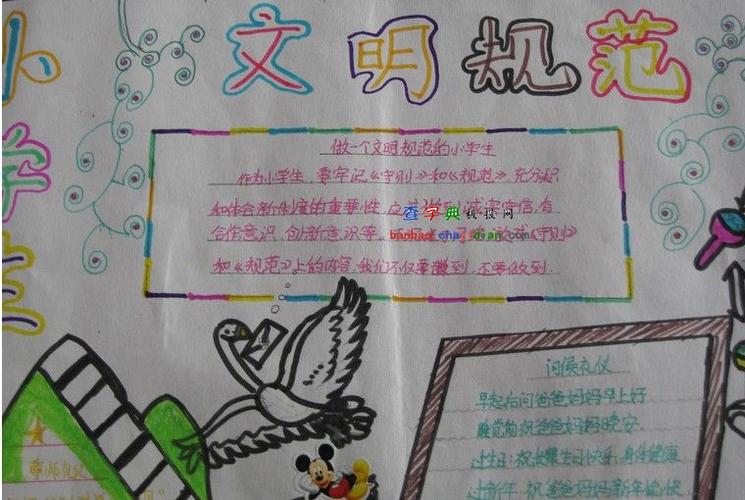 文明规范
小学生
做一个文明规范的小学生
作为小学生,要牢记《守则》和《规范》,充分认识
和体会新制度的重要性,应
诚实守信,有
合作意识,创新意识等。
《守则》
和《规范》上的内容,我们不仅要
到,还要做到.
查字典板报网
banbao.chazidian.com
问候礼仪
早起后问爸爸妈妈早上好
睡觉前祝爸爸妈妈晚安
过生日:祝长辈生日快乐,身体健康
过新年:祝爸爸妈妈新年愉快
尊师礼仪